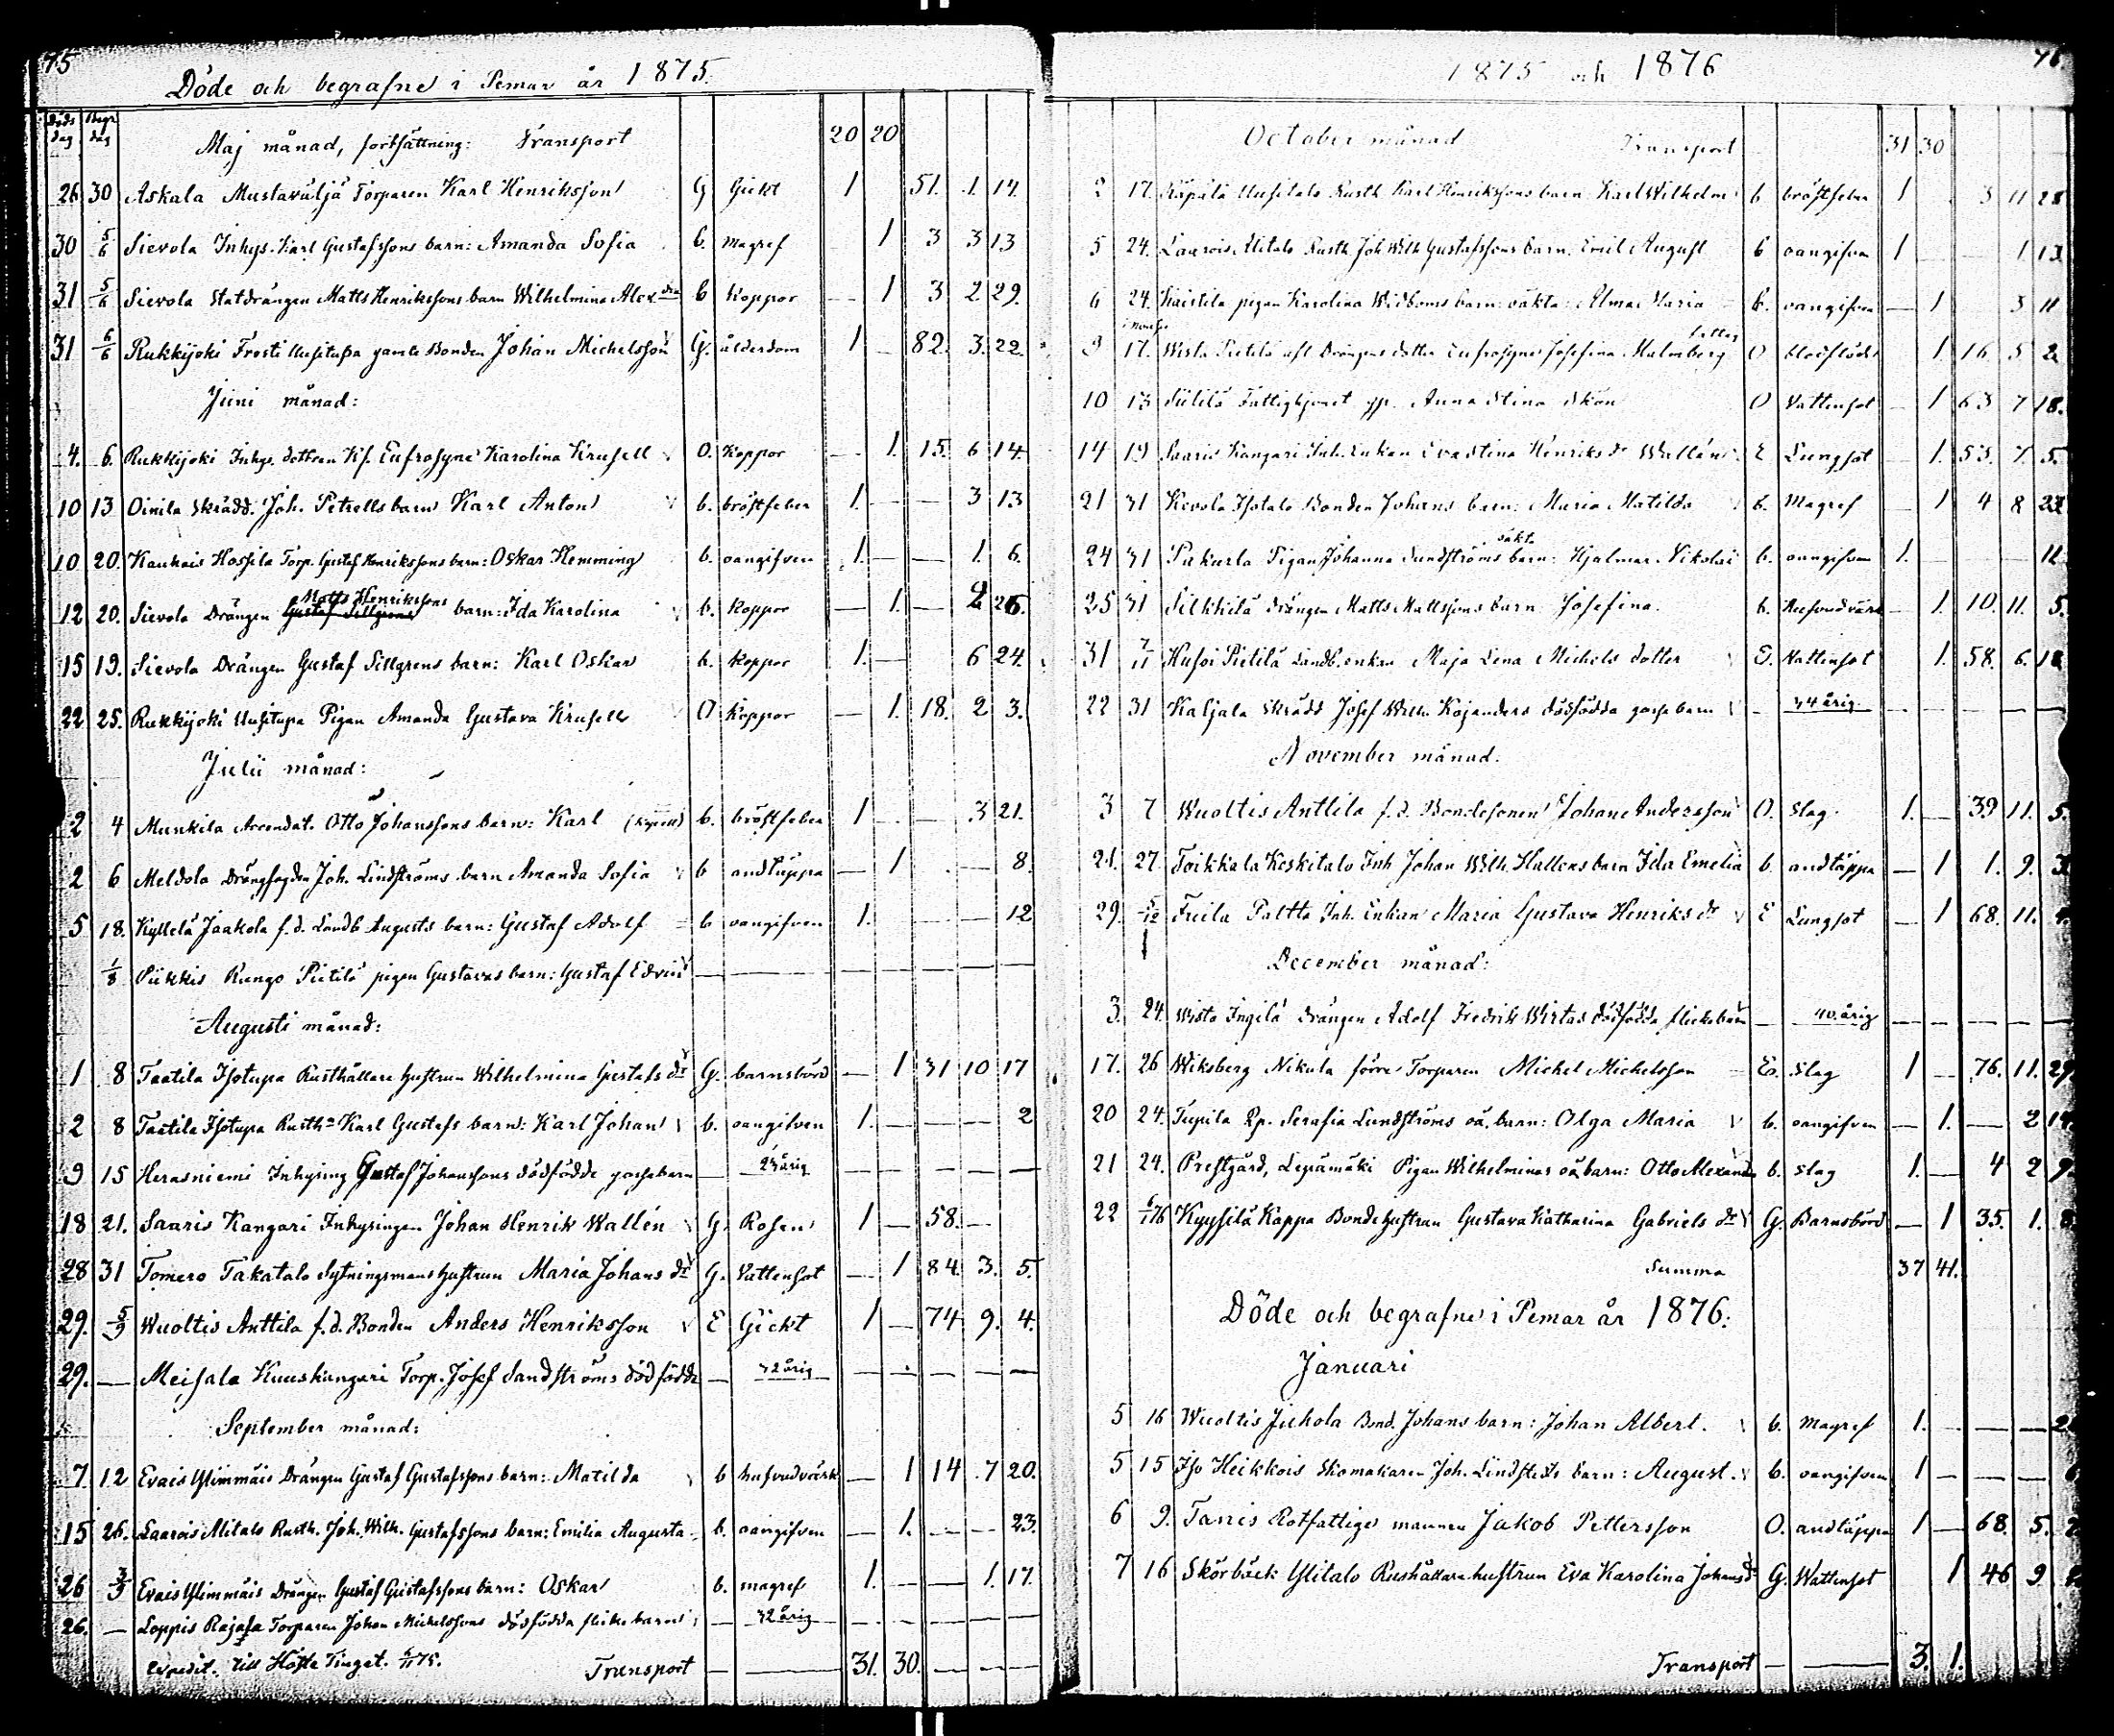 75
Döde och begrafne i Pemar år 1875.
Döds dag Begr dag Maj månad, fortsättning: Transport 20 20
26 30 Askala Mustaväljä Torparen Karl Henriksson G Gickt 1 51. 1. 14.
30 5/6 Sievola Inhys. Karl Gustafssons barn: Amanda Sofia b. magref 1 3 3 13
31 5/6 Sievola Statdrängen Matts Henrikssons barn Wilhelmina Alex dra b koppor — 1 3 2 29.
31 6/6 Rukkijoki Frosti Uusitupa gamle Bonden Johan Michelsson G. ålderdom 1 — 82. 3. 22.
Juni månad:
4. 6. Rukkijoki Inhys. dottren Kf. Eufrosyne Karolina Krusell O. Koppor — 1. 15. 6 14.
10 13 Oinila Skrädd. Joh. Petrells barn Karl Anton b. bröstfeber 1. — — 3 13
10 20. Kauhais Hossila Torp. Gustaf Henrikssons barn: Oskar Hemming b. oangifven 1. — — 1. 6.
Matts Henrikssons
12 20. Sievola Drängen Gustaf Sillgrens barn: Ida Karolina b. koppor — 1. — 2 26.
15 19. Sievola Drängen Gustaf Sillgrens barn: Karl Oskar b. koppor 1. — 6 24.
22 25. Rukkijoki Uusitupa Pigan Amanda Gustava Krusell O Koppor — 1. 18. 2 3.
Julii månad:
2 4 Munkila Arrendat. Otto Johanssons barn: Karl b. bröstfeber 1 — — 3 21.
2 6 Meldola Drängfogden Joh. Lindströms barn Amanda Sofia b andtäppa — 1 — 8.
5 18. Kyllelä Jaakola f.d. Landb Augusts barn: Gustaf Adolf b oangifven 1. — — — 12
1/8 Piikkis Rungo Pietilä pigan Gustavas barn: Gustaf Edvin — — — — — — —
Augusti månad:
1 8 Taatila Isotupa Rusthållare hustrun Wilhelmina Gustafs dr G. barnsbörd — 1 31 10 17
2 8 Taatila Isotupa Rusth. Karl Gustafs barn: Karl Johan b. oangifven 1. — — — 2
9 15 Herasniemi Inhysing Gustaf Johanssons dödfödde gossebarn — 23 årig — — — — —
18 21. Saaris Kangari Inhysingen Johan Henrik Wallén G. Rosen 1 — 58. —
28 31 Tomero Takatalo Sytningsmans hustrun Maria Johans dr G. Vattensot — 1 84. 3. 5.
29. 5/9 Wuoltis Anttila f.d. Bonden Anders Henriksson E Gickt 1 — 74 9. 4.
29. — Meisala Kuuskangari Torp. Josef Sandströms dödfödde — 32 årig — — — — —
September månad:
7 12 Evais Ylimmäis Drängen Gustaf Gustafssons barn: Matilda b hufvudvärk — 1 14 7 20.
15 26. Laarois Alitalo Rusth. Joh. Wilh. Gustafssons barn: Emilia Augusta b. oangifven — 1. — — 23.
26 3/9 Evais Ylimmäis Drängen Gustaf Gustafssons barn: Oskar b. magref 1. — — 1. 17.
26. — Loppis Rajala Torparen Johan Michelssons dödfödda flickebarn — 32 årig — — — — —
Exredit. till Höste Tinget. 6/11 75. Transport — — 31. 30. — — —
76.
1875 och 1876
October månad Transport 31 30
2 17. Käpälä Uusitalo Rusth Karl Henrikssons barn Karl Wilhelm b bröstfeber 1 3 11 28
5 24. Laarois Alitalo Rusth. Joh Wilh Gustafssons barn. Emil August b oangifven 1 1 13
6 24. Kaistila pigan Karolina Widboms barn: oäkta: Alma Maria b. oangifven — 1 3 11
3 17. Wista Pietilä afl Drängens dotter Eufrosyne Josefina Malmberg O blodflöde 1. 16 5 2
10 13 Fattighjonet Anna Stina Skön O Vattensot — 1 63 7 18.
14 19 Saaris Kangari Inh. Enkan Eva Stina Henriks dr Wallén E Lungsot 1. 53. 7. 5.
21 31 Kevola Isotalo Bonden Johans barn: Maria Matilda b. Magref 1 4 8 23
oäkt.
24 31 Pukurla Pigan Johanna Sundströms barn: Hjalmar Nikolai b. oangifven 1. — — — 11
25 31 Silkkilä Drängen Matts Mattssons barn Josefina. b. Hufvudvärk — 1. 10. 11. 5.
31 7/11 Husoi Pietilä Landb. enkan Maja Lena Michels dotter E. Vattensot 1. 58. 6. 18
22 31 Kaljala Skrädd Josef Wilh. Kojanders dödfödda gossebarn — 34 årig — — — — —
November månad.
3 7 Wuoltis Anttila f.d. Bondesonen Johan Andersson O. Slag. 1. — 39 11. 5.
21. 27 Toikkala Keskitalo Inh Johan Wilh. Hallens barn Ida Emelia b. andtäppa — 1 1. 9. 3
29. 5/12 Fuila Paltta Inh. Enkan Maria Gustava Henriks dr E Lungsot — 1 68. 11. 4.
December månad:
3. 24. Wista Ingilä drängen Adolf Fredrik Wirtas dödfödda flickebarn — 40. årig — — — — —
17. 26 Wiksberg Nikula förre Torparen Michel Michelsson E. Slag 1 — 76. 11. 29
20 24. Tupila Rp. Serafia Lundströms oä. barn: Olga Maria b. oangifven — 1. — 2 14.
21 24. Prestgård, Lepämäki Pigan Wilhelminas oä barn: Otto Alexander b. Slag 1. — 4 2 9.
22 6/1 76 Kyysilä Käppa Bonde hustrun Gustava Katharina Gabriels dr G. Barnsbörd — 1 35. 1. 8
Summa 37 41.
Döde och begrafne i Pemar år 1876.
Januari
5 16 Wuoltis Juhola Bond. Johans barn: Johan Albert. b. Magref 1. — — — 2
5 15 Iso Heikkois Skomakaren Joh. Lindstedts barn: August. b. oangifven 1 — — — 6
6 9. Tanis Rotfattige mannen Jakob Pettersson O. andtäppa 1 — 68. 5. 2
7 16 Skörbäck Ylitalo Rushållare hustrun Eva Karolina Johans dr G. Wattensot 1 46 9
Transport — — 3. 1.